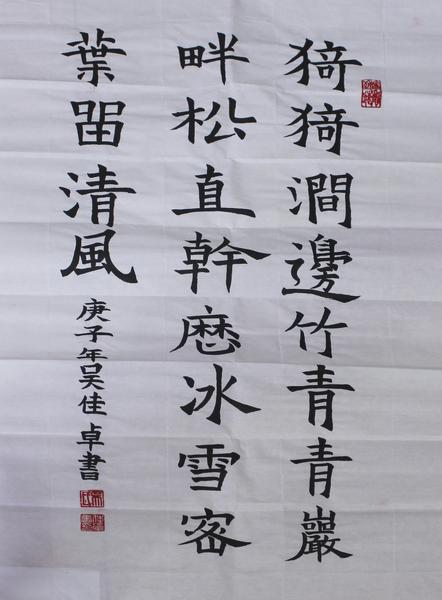 猗猗澗邊竹青青巖
畔松直幹歷冰雪密
葉留清風
庚子年吴佳卓書